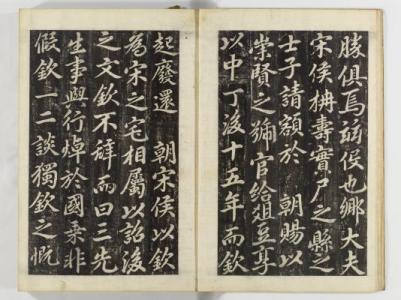 勝俱焉弼侯也鄉大夫
宋侯枏壽實尸之縣之
士子請額於　朝賜以
崇賢之號官給俎豆享
以中丁後十五年而欽
起廢還　朝宋侯以欽
為宋之宅相屬以詔後
之文欽不辭而曰三先
生事與行焯於國乘非
假欽一二談獨欽之慨